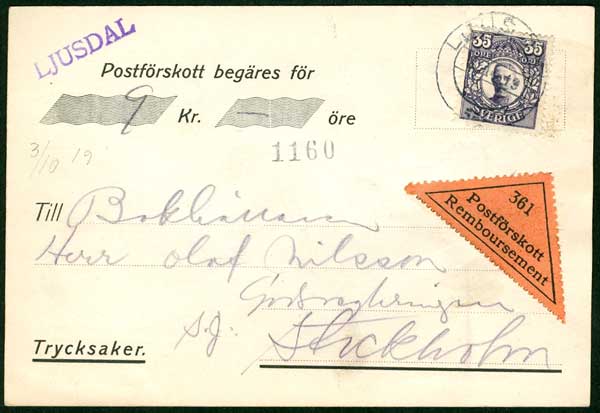 LJUSDAL
Postförskott begäres för
9 Kr. — öre
35 35
ÖRE
SVERIGE
1160
3/10 19
361
Postförskott
Remboursement
Till Bokhållaren
Herr Olof Nilsson
S.J. Stockholm
Trycksaker.